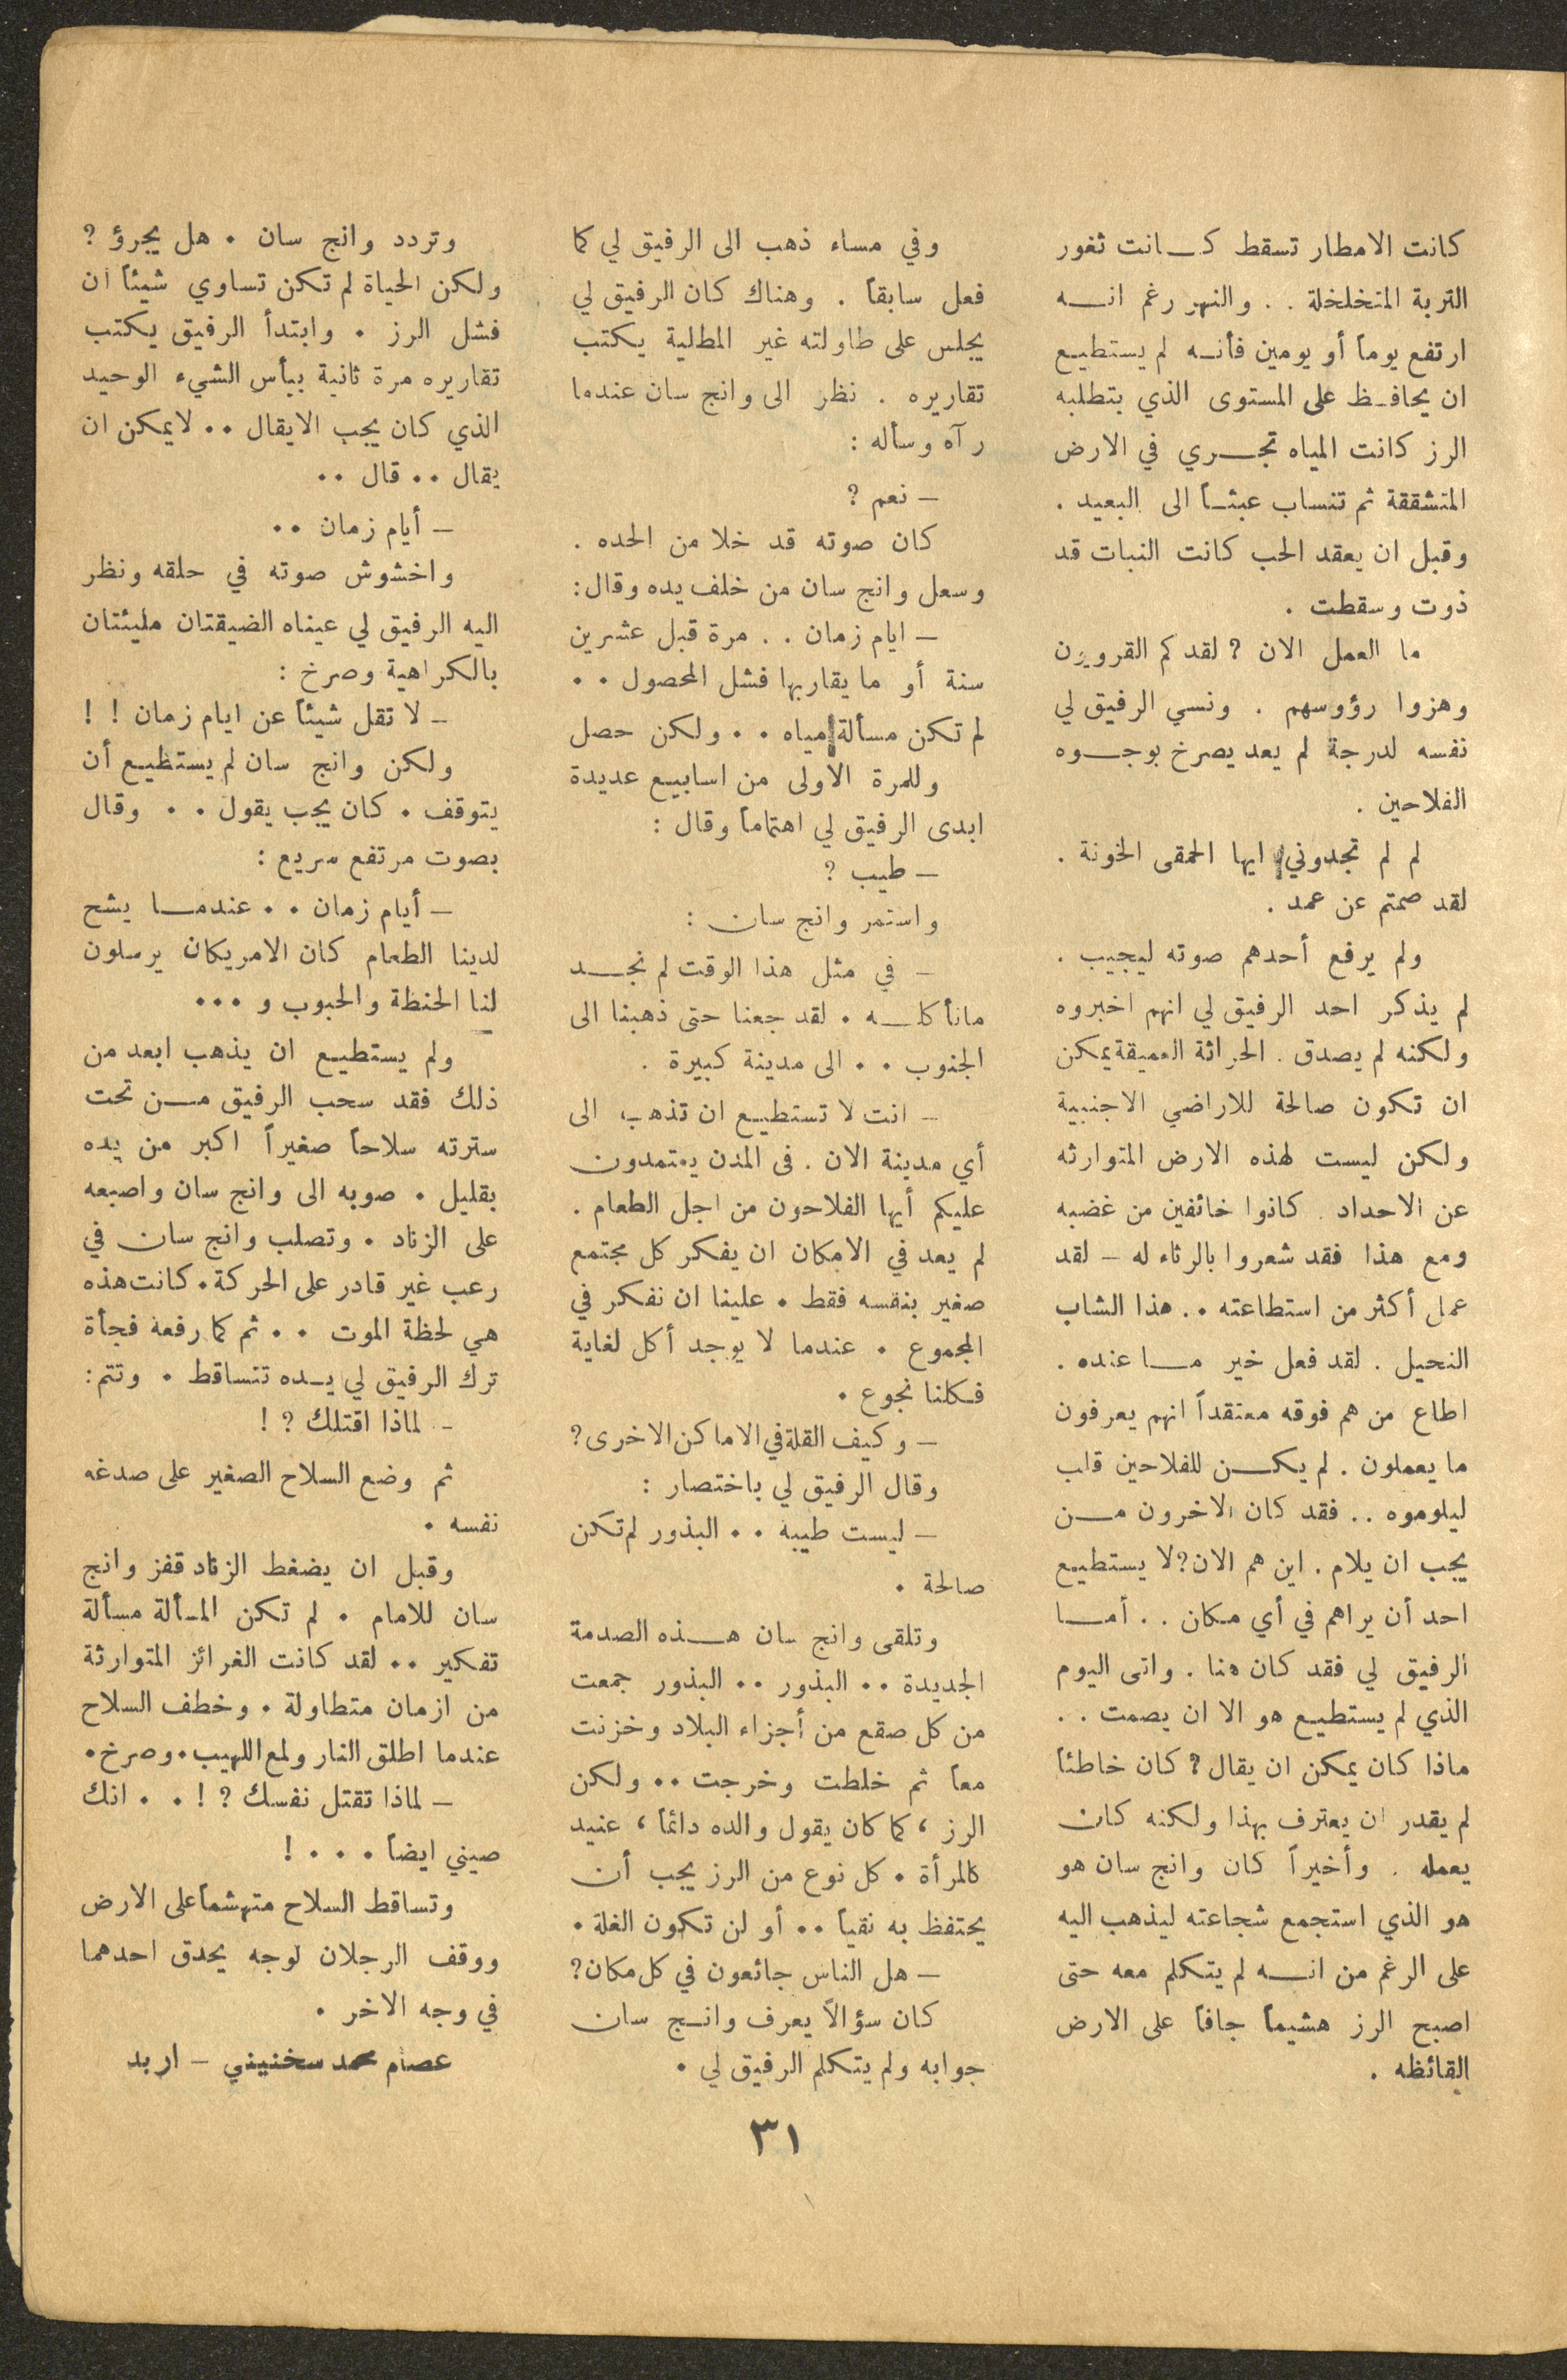 كانت الامطار تسقط كانت ثغور
التربة المتخلخلة . . والنهر رغم انه
ارتفع يوماً أو يومين فأنه لم يستطيع
ان يحافظ على المستوى الذي يتطلبه
الرز كانت المياه تجري في الارض
المتشققة ثم تنساب عبثاً الى البعيد .
وقبل ان يعقد الحب كانت النبات قد
ذوت وسقطت .
ما العمل الان ؟ لقد كم القرويون
وهزوا رؤوسهم . ونسي الرفيق لي
نفسه لدرجة لم يعد يصرخ بوجوه
الفلاحين .
لم لم تجدوني ايها الحمقى الخونة .
لقد صمتم عن عمد .
ولم يرفع أحدهم صوته ليجيب .
لم يذكر احد الرفيق لي انهم اخبروه
ولكنه لم يصدق . الحراثة العميقة يمكن
ان تكون صالحة للاراضي الاجنبية
ولكن ليست لهذه الارض المتوارثه
عن الاحداد . كانوا خائفين من غضبه
ومع هذا فقد شعروا بالرثاء له – لقد
عمل أكثر من استطاعته . . هذا الشاب
النحيل . لقد فعل خير ما عنده .
اطاع من هم فوقه معتقداً انهم يعرفون
ما يعملون . لم يكن للفلاحين قلب
ليلوموه . . فقد كان الاخرون من
يجب ان يلام . اين هم الان ؟ لا يستطيع
احد أن يراهم في أي مكان . . أما
الرفيق لي فقد كان هنا . واتى اليوم
الذي لم يستطيع هو الا ان يصمت . .
ماذا كان يمكن ان يقال ؟ كان خاطئاً
لم يقدر ان يعترف بهذا ولكنه كان
يعمله . وأخيراً كان وانج سان هو
هو الذي استجمع شجاعته ليذهب اليه
على الرغم من انه لم يتكلم معه حتى
اصبح الرز هشيماً جافاً على الارض
القائظه .
وفي مساء ذهب الى الرفيق لي كما
فعل سابقاً . وهناك كان الرفيق لي
يجلس على طاولته غير المطلية يكتب
تقاريره . نظر الى وانج سان عندما
رآه وسأله :
– نعم ؟
كان صوته قد خلا من الحده .
وسعل وانج سان من خلف يده وقال :
– ايام زمان . . مرة قبل عشرين
سنة أو ما يقاربها فشل المحصول . .
لم تكن مسألة مياه . . ولكن حصل
وللمرة الاولى من اسابيع عديدة
ابدى الرفيق لي اهتماماً وقال :
– طيب ؟
واستمر وانج سان :
– في مثل هذا الوقت لم نجد
مانأكله . لقد جعنا حتى ذهبنا الى
الجنوب . . الى مدينة كبيرة .
– انت لا تستطيع ان تذهب الى
أي مدينة الان . فى المدن يعتمدون
عليكم أيها الفلاحون من اجل الطعام .
لم يعد في الامكان ان يفكر كل مجتمع
صغير بنفسه فقط . علينا ان نفكر في
المجموع . عندما لا يوجد أكل لغاية
فكلنا نجوع .
– وكيف القلة في الاماكن الاخرى ؟
وقال الرفيق لي باختصار :
– ليست طيبة . . البذور لم تكن
صالحة .
وتلقى وانج سان هذه الصدمة
الجديدة . . البذور . . البذور جمعت
من كل صقع من أجزاء البلاد وخزنت
معاً ثم خلطت وخرجت . . ولكن
الرز ، كما كان يقول والده دائماً ، عنيد
كالمرأة . كل نوع من الرز يجب أن
يحتفظ به نقياً . . أو لن تكون الغلة .
– هل الناس جائعون في كل مكان ؟
كان سؤالاً يعرف وانج سان
جوابه ولم يتكلم الرفيق لي .
وتردد وانج سان . هل يجرؤ ؟
ولكن الحياة لم تكن تساوي شيئاً ان
فشل الرز . وابتدأ الرفيق يكتب
تقاريره مرة ثانية بيأس الشيء الوحيد
الذي كان يجب الايقال . . لايمكن ان
يقال . . قال . .
– أيام زمان . .
واخشوش صوته في حلقه ونظر
اليه الرفيق لي عيناه الضيقتان مليئتان
بالكراهية وصرخ :
– لا تقل شيئاً عن ايام زمان ! !
ولكن وانج سان لم يستطيع أن
يتوقف . كان يجب يقول . . وقال
بصوت مرتفع سريع :
– أيام زمان . . عندما يشح
لدينا الطعام كان الامريكان يرسلون
لنا الحنظة والحبوب و . . .
ولم يستطيع ان يذهب ابعد من
ذلك فقد سحب الرفيق من تحت
سترته سلاحاً صغيراً اكبر من يده
بقليل . صوبه الى وانج سان واصبعه
على الزناد . وتصلب وانج سان في
رعب غير قادر على الحركة . كانت هذه
هي لحظة الموت . . ثم كما رفعه فجأة
ترك الرفيق لي يده تتساقط . وتتم :
– لماذا اقتلك ؟ !
ثم وضع السلاح الصغير على صدغه
نفسه .
وقبل ان يضغط الزناد قفز وانج
سان للامام . لم تكن المسألة مسألة
تفكير . . لقد كانت الغرائز المتوارثة
من ازمان متطاولة . وخطف السلاح
عندما اطلق النار ولمع اللهيب . وصرخ .
– لماذا تقتل نفسك ؟ ! . . انك
صيني ايضاً . . . !
وتساقط السلاح متهشماً على الارض
ووقف الرجلان لوجه يحدق احدهما
في وجه الاخر .
عصام محمد سخنيني – اربد
٣١